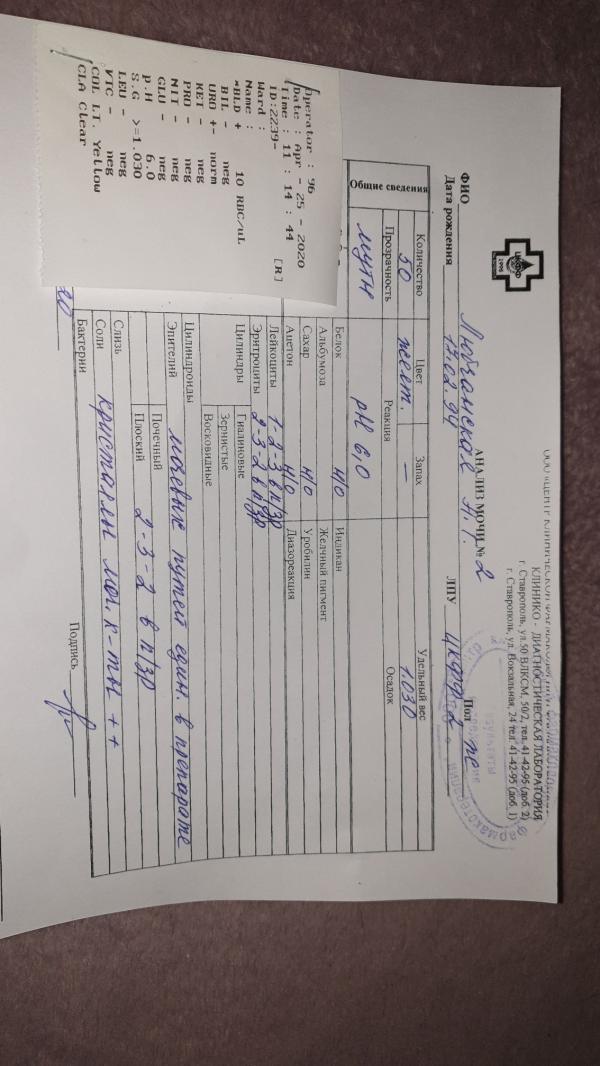 ООО «ЦЕНТР КЛИНИЧЕСКОЙ
КЛИНИКО - ДИАГНОСТИЧЕСКАЯ ЛАБОРАТОРИЯ
г. Ставрополь, ул.50 ВЛКСМ, 50/2, тел. 41-42-95 (доб. 2)
г. Ставрополь, ул. Вокзальная, 24 тел. 41-42-95 (доб. 1)
1995
АНАЛИЗ МОЧИ № 2
ФИО Н. Г. ЛПУ ЦКФФ 2 Пол
Дата рождения 17.02.94
Общие сведения
Количество Цвет Запах Удельный вес
50 желт. — 1.030
Прозрачность Реакция Осадок
мутн pH 6,0
Белок н/о Индикан
Альбумоза Желчный пигмент
Сахар н/о Уробилин
Ацетон н/о Диазореакция
Лейкоциты 1-2-3 в п/зр
Эритроциты 2-3-2 в п/зр
Цилиндры Гиалиновые
Зернистые
Восковидные
Цилиндроиды
Эпителий мочевых путей един. в препарате
Почечный
Плоский 2-3-2 в п/зр
Слизь
Соли кристаллы моч. к-ты ++
Бактерии
Подпись
Operator : 96
Date : Apr - 25 - 2020
Time : 11 : 14 : 44
ID:2239- [R]
Ward :
Name :
*BLD + 10 RBC/uL
BIL - neg
URO +- norm
KET - neg
PRO - neg
NIT - neg
GLU - neg
p.H 6.0
S.G >=1.030
LEU - neg
VTC - neg
COL LT. Yellow
CLA Clear